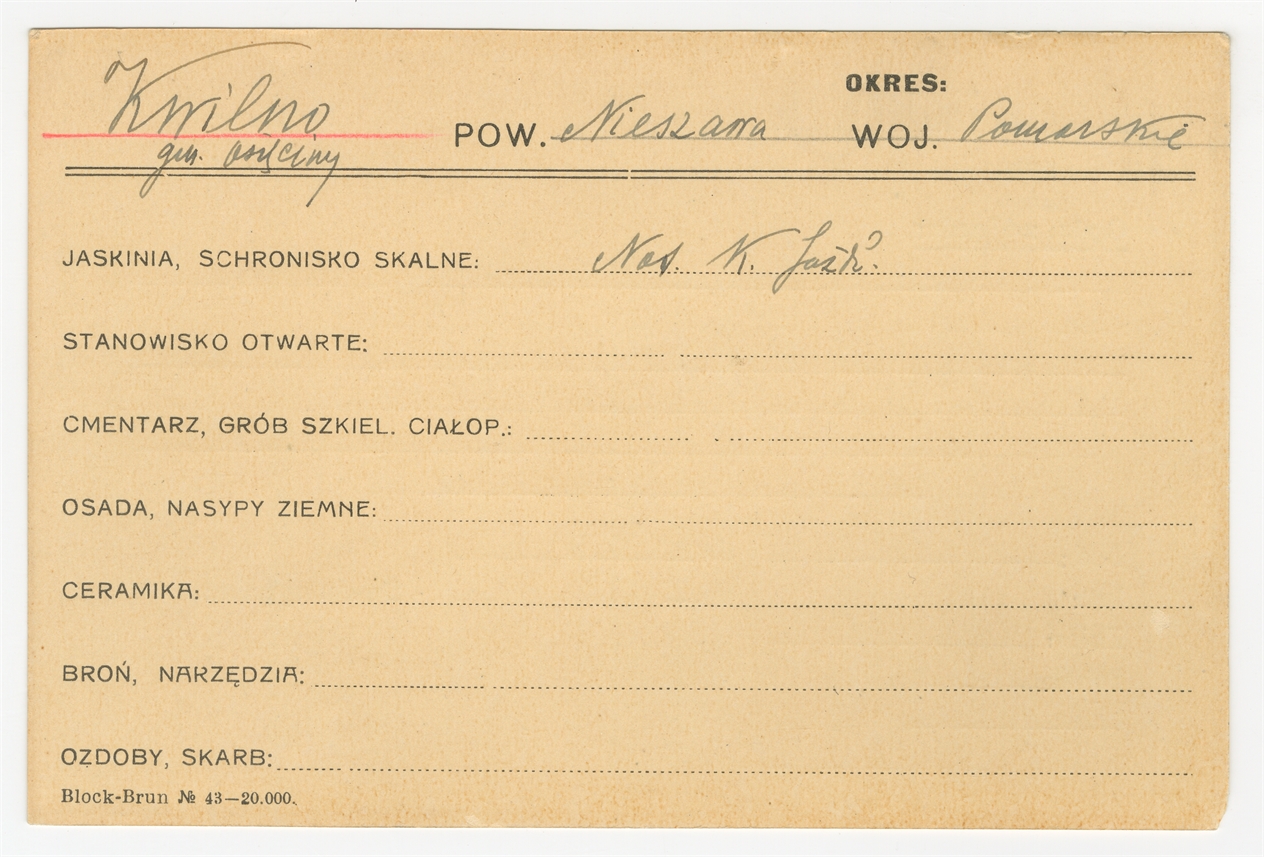 OKRES:
Kwilno POW. Nieszawa WOJ. Pomorskie
gm. Osięciny
JASKINIA, SCHRONISKO SKALNE: K.
STANOWISKO OTWARTE:
CMENTARZ, GRÓB SZKIEL. CIAŁOP.:
OSADA, NASYPY ZIEMNE:
CERAMIKA:
BROŃ, NARZĘDZIA:
OZDOBY, SKARB:
Block-Brun № 43—20.000.